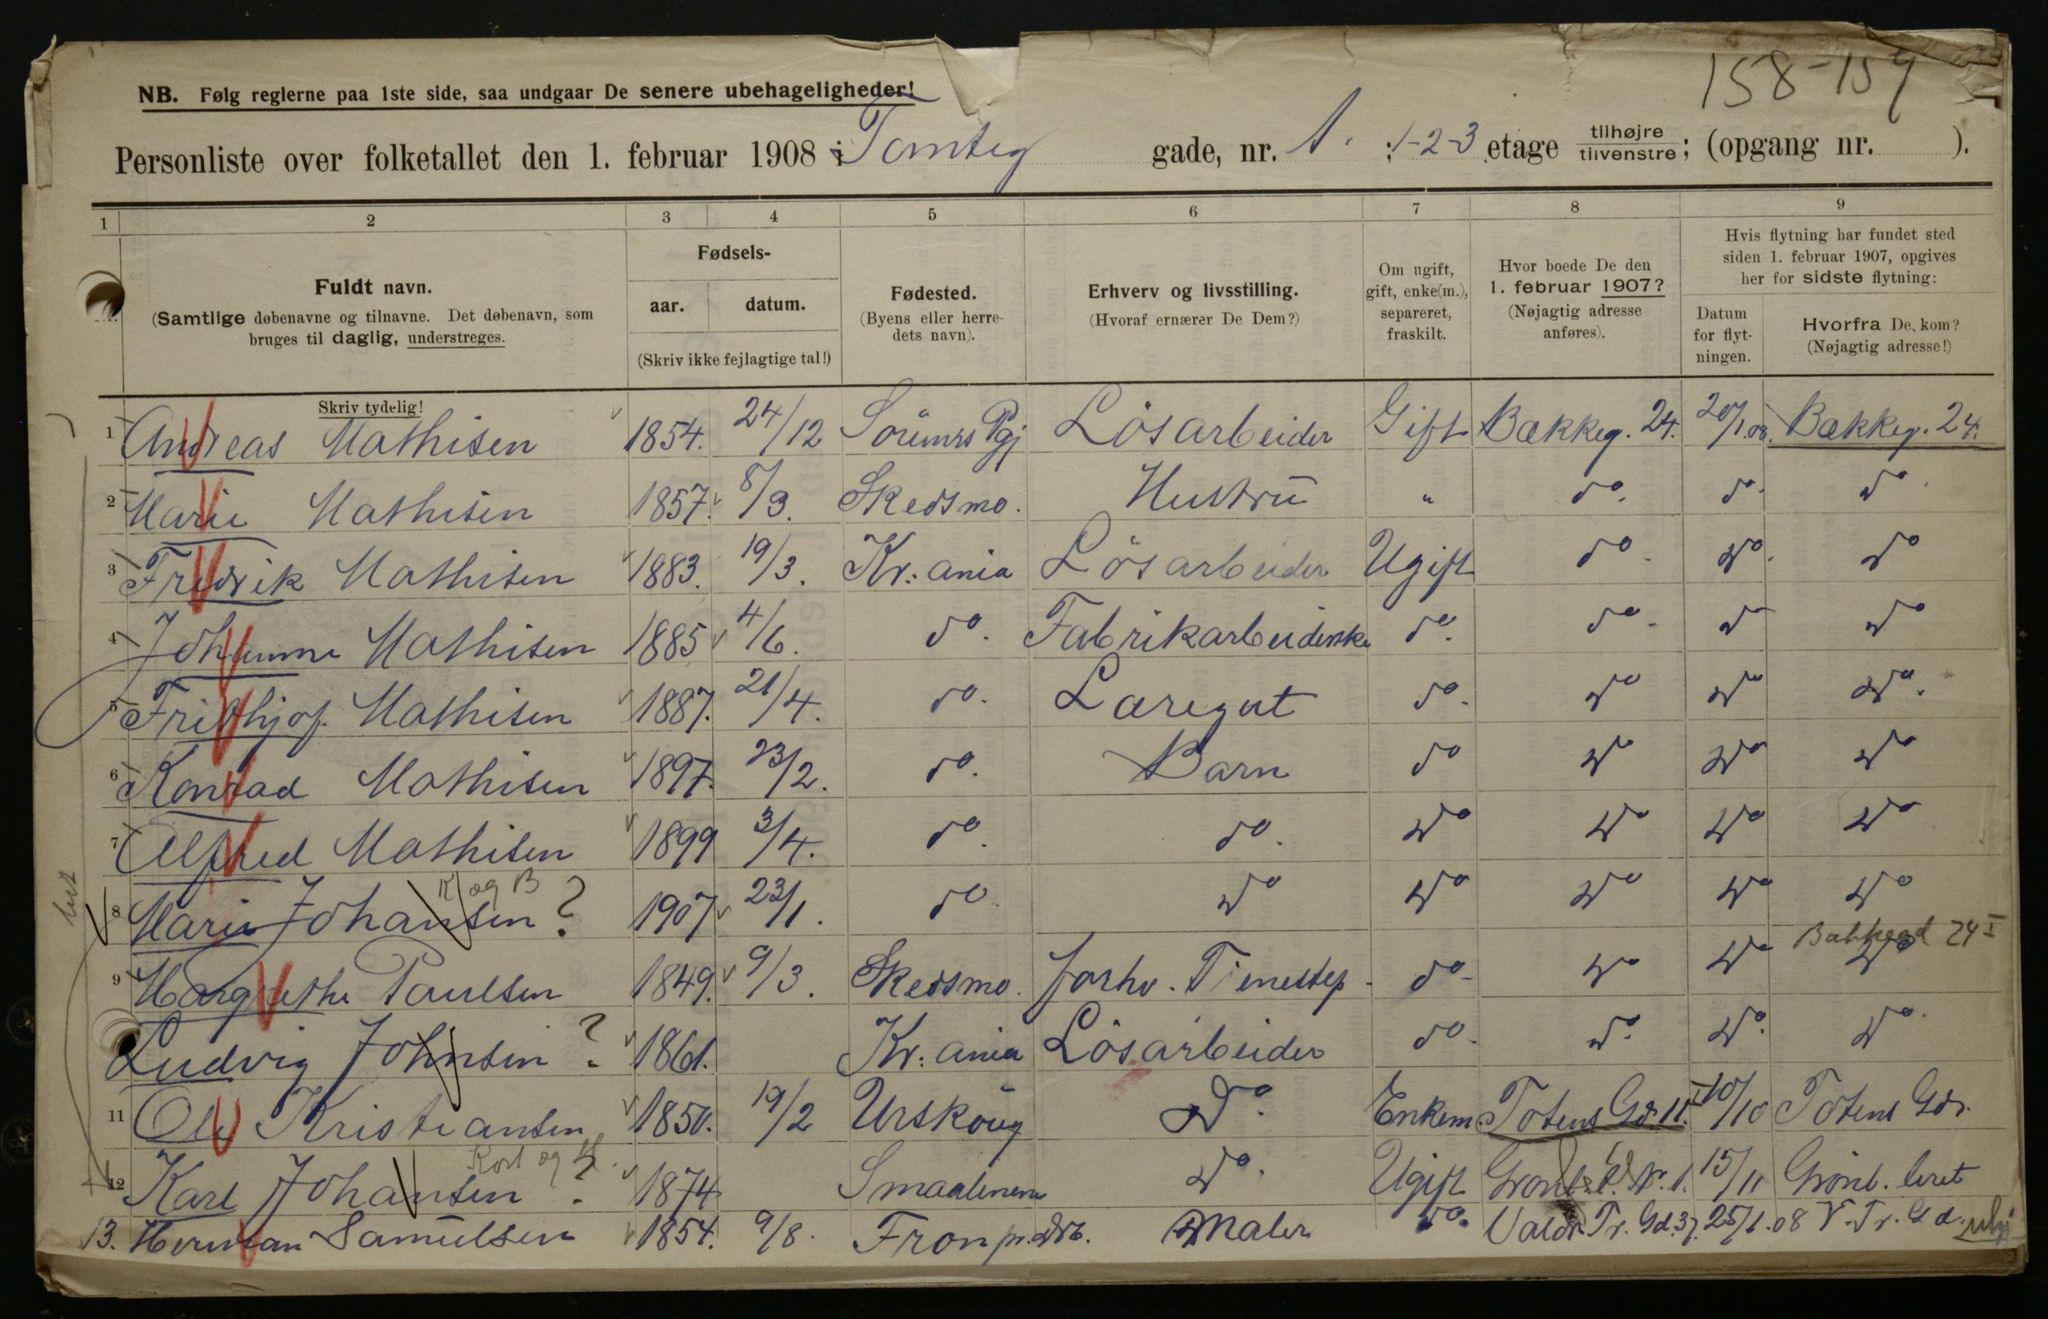 158-159
NB. Følg reglerne paa 1ste side, saa undgaar De senere ubehageligheder!
Personliste over folketallet den 1. februar 1908 i Tomteg gade, nr. 1. ; 1-2-3 etage tilhøjre / tilvenstre; (opgang nr. ).
1 2 3 4 5 6 7 8 9
Fuldt navn. (Samtlige døbenavne og tilnavne. Det døbenavn, som bruges til daglig, understreges.
Skriv tydelig!
Fødsels- aar. datum. (Skriv ikke fejlagtige tal!)
Fødested. (Byens eller herredets navn).
Erhverv og livsstilling. (Hvoraf ernærer De Dem?)
Om ugift, gift, enke(m.), separeret, fraskilt.
Hvor boede De den 1. februar 1907? (Nøjagtig adresse anføres).
Hvis flytning har fundet sted siden 1. februar 1907, opgives her for sidste flytning:
Datum for flytningen.
Hvorfra De kom? (Nøjagtig adresse!)
1 Andreas Mathisen 1854. 24/12 Sörums Pgj Lösarbeider Gift Bækkeg. 24. 20/1.08. Bækkeg. 24.
2 Marie Mathisen 1857. 8/3. Skedsmo. Hustru " do. do. do
3 Fredrik Mathisen 1883. 19/3. Kr:ania Lösarbeider Ugift do. do. do
4 Johanne Mathisen 1885 4/6. do. Fabrikarbeiderske do. do. do do
5 Frithjof Mathisen 1887. 21/4. do. Læregut do. do do do.
6 Konrad Mathisen 1897. 23/2. do. Barn do do do do
7 Alfred Mathisen 1899 3/4. do. do. do do do do
K og B
8 Marie Johansen? 1907 23/1. do do do do do do
Bakkegd 24 I
9 Margrethe Paulsen 1849. 9/3. Skedsmo. forhv. Tienestep. do do do do
Ludvig Johnsen? 1861. Kr:ania Lösarbeider do. do. do. do.
11 Ole Kristiansen 1850. 19/2 Urskoug do. Enkem. Totens Gd. 11. 10/10 Totens Gdr.
Kort og
12 Karl Johansen? 1874 Smaalenene do. Ugift Nr. 1. 15/11 Grønl. leret
13. Herman Samuelsen 1854. 9/8. Fron pr. Drb. Maler do. Valdr. Tr. Gd. 37. 25/1.08 V. Tr. Gd.